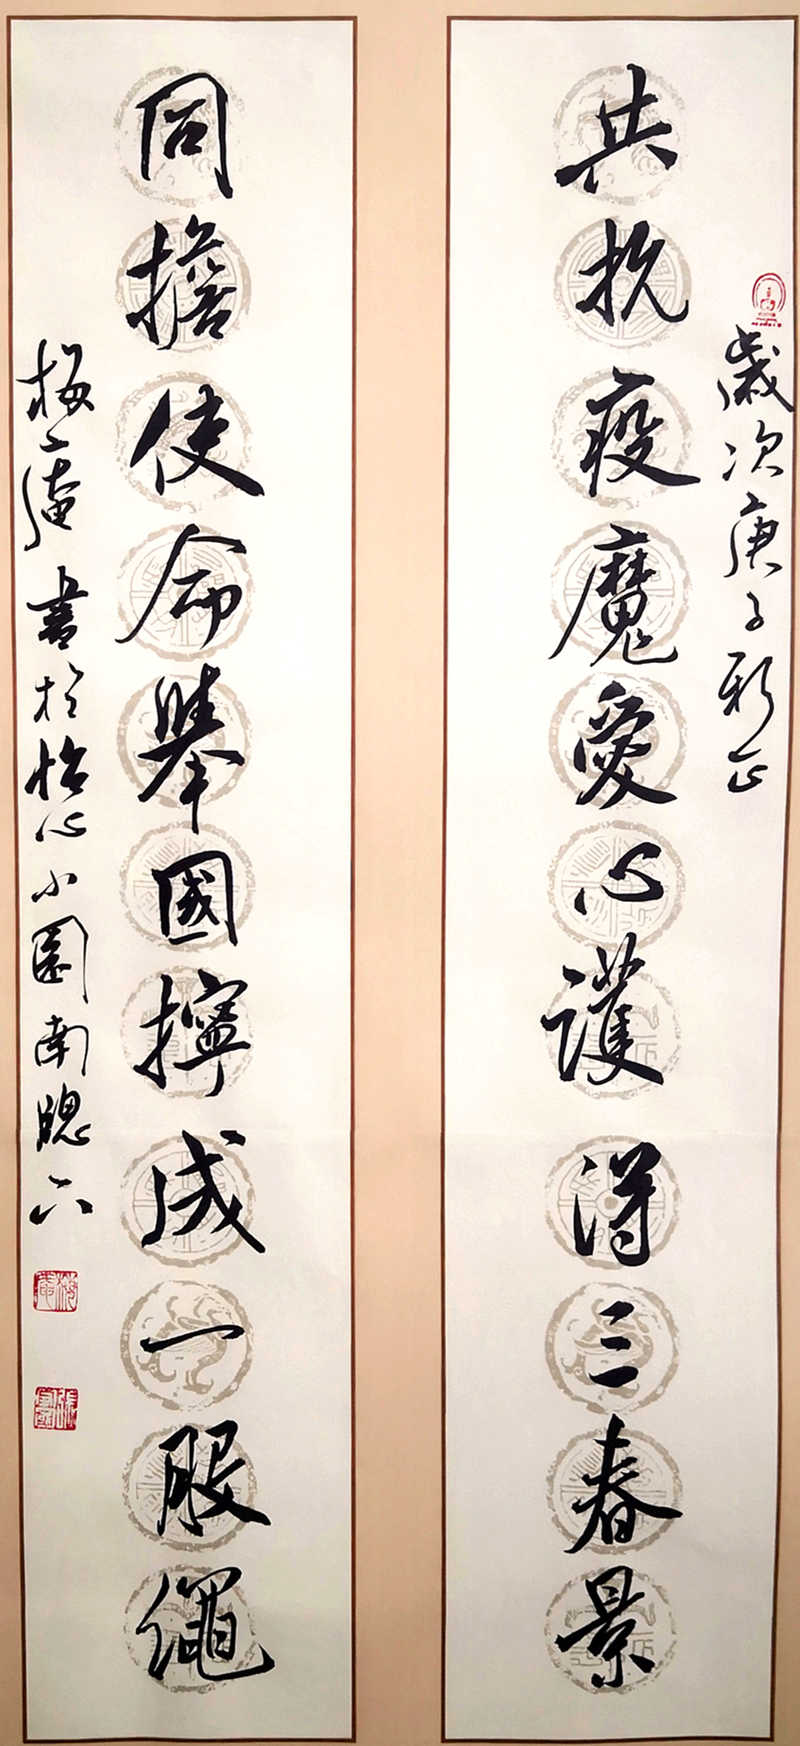 歲次庚子新正
共抗疫魔愛心護得三春景
同擔使命舉國擰成一股繩
梅庵書於怡心小園南牕下